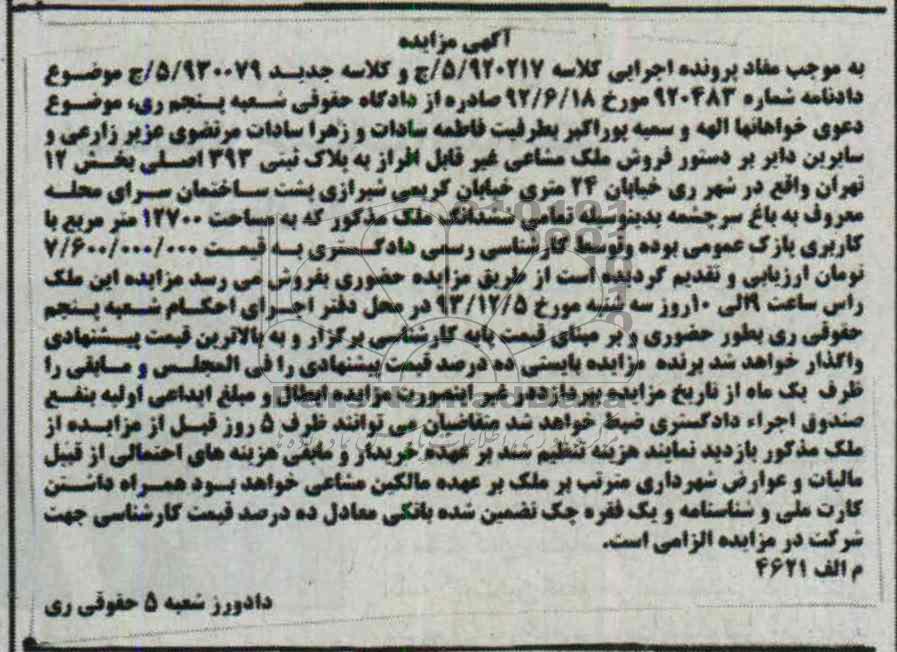 آگهی مزایده
به موجب مفاد پرونده اجرایی کلاسه ۵/۹۲۰۲۱۷/ج و کلاسه جدید ۵/۹۳۰۰۷۹/ج موضوع
دادنامه شماره ۹۲۰۴۸۳ مورخ ۹۲/۶/۱۸ صادره از دادگاه حقوقی شعبه پنجم ری، موضوع
دعوی خواهانها الهه و سمیه پوراکبر بطرفیت فاطمه سادات و زهرا سادات مرتضوی عزیر زارعی و
سایرین دایر بر دستور فروش ملک مشاعی غیر قابل افراز به پلاک ثبتی ۳۹۳ اصلی بخش ۱۲
تهران واقع در شهر ری خیابان ۲۴ متری خیابان کریمی شیرازی پشت ساختمان سرای محله
معروف به باغ سرچشمه بدینوسیله تمامی ششدانگ ملک مذکور که به مساحت ۱۲۷۰۰ متر مربع با
کاربری پارک عمومی بوده وتوسط کارشناسی رسمی دادگستری به قیمت ۷/۶۰۰/۰۰۰/۰۰۰
تومان ارزیابی و تقدیم گردیده است از طریق مزایده حضوری بفروش می رسد مزایده این ملک
راس ساعت ۹الی ۱۰روز سه شنبه مورخ ۹۳/۱۲/۵ در محل دفتر اجرای احکام شعبه پنجم
حقوقی ری بطور حضوری و بر مبنای قیمت پایه کارشناسی برگزار و به بالاترین قیمت پیشنهادی
واگذار خواهد شد برنده مزایده بایستی ده درصد قیمت پیشنهادی را فی المجلس و مابقی را
ظرف یک ماه از تاریخ مزایده بپردازددر غیر اینصورت مزایده ابطال و مبلغ ابداعی اولیه بنفع
صندوق اجراء دادگستری ضبط خواهد شد متقاضیان می توانند ظرف ۵ روز قبل از مزایده از
ملک مذکور بازدید نمایند هزینه تنظیم سند بر عهده خریدار و مابقی هزینه های احتمالی از قبیل
مالیات و عوارض شهرداری مترتب بر ملک بر عهده مالکین مشاعی خواهد بود همراه داشتن
کارت ملی و شناسنامه و یک فقره چک تضمین شده بانکی معادل ده درصد قیمت کارشناسی جهت
شرکت در مزایده الزامی است.
م الف ۴۶۲۱
دادورز شعبه ۵ حقوقی ری